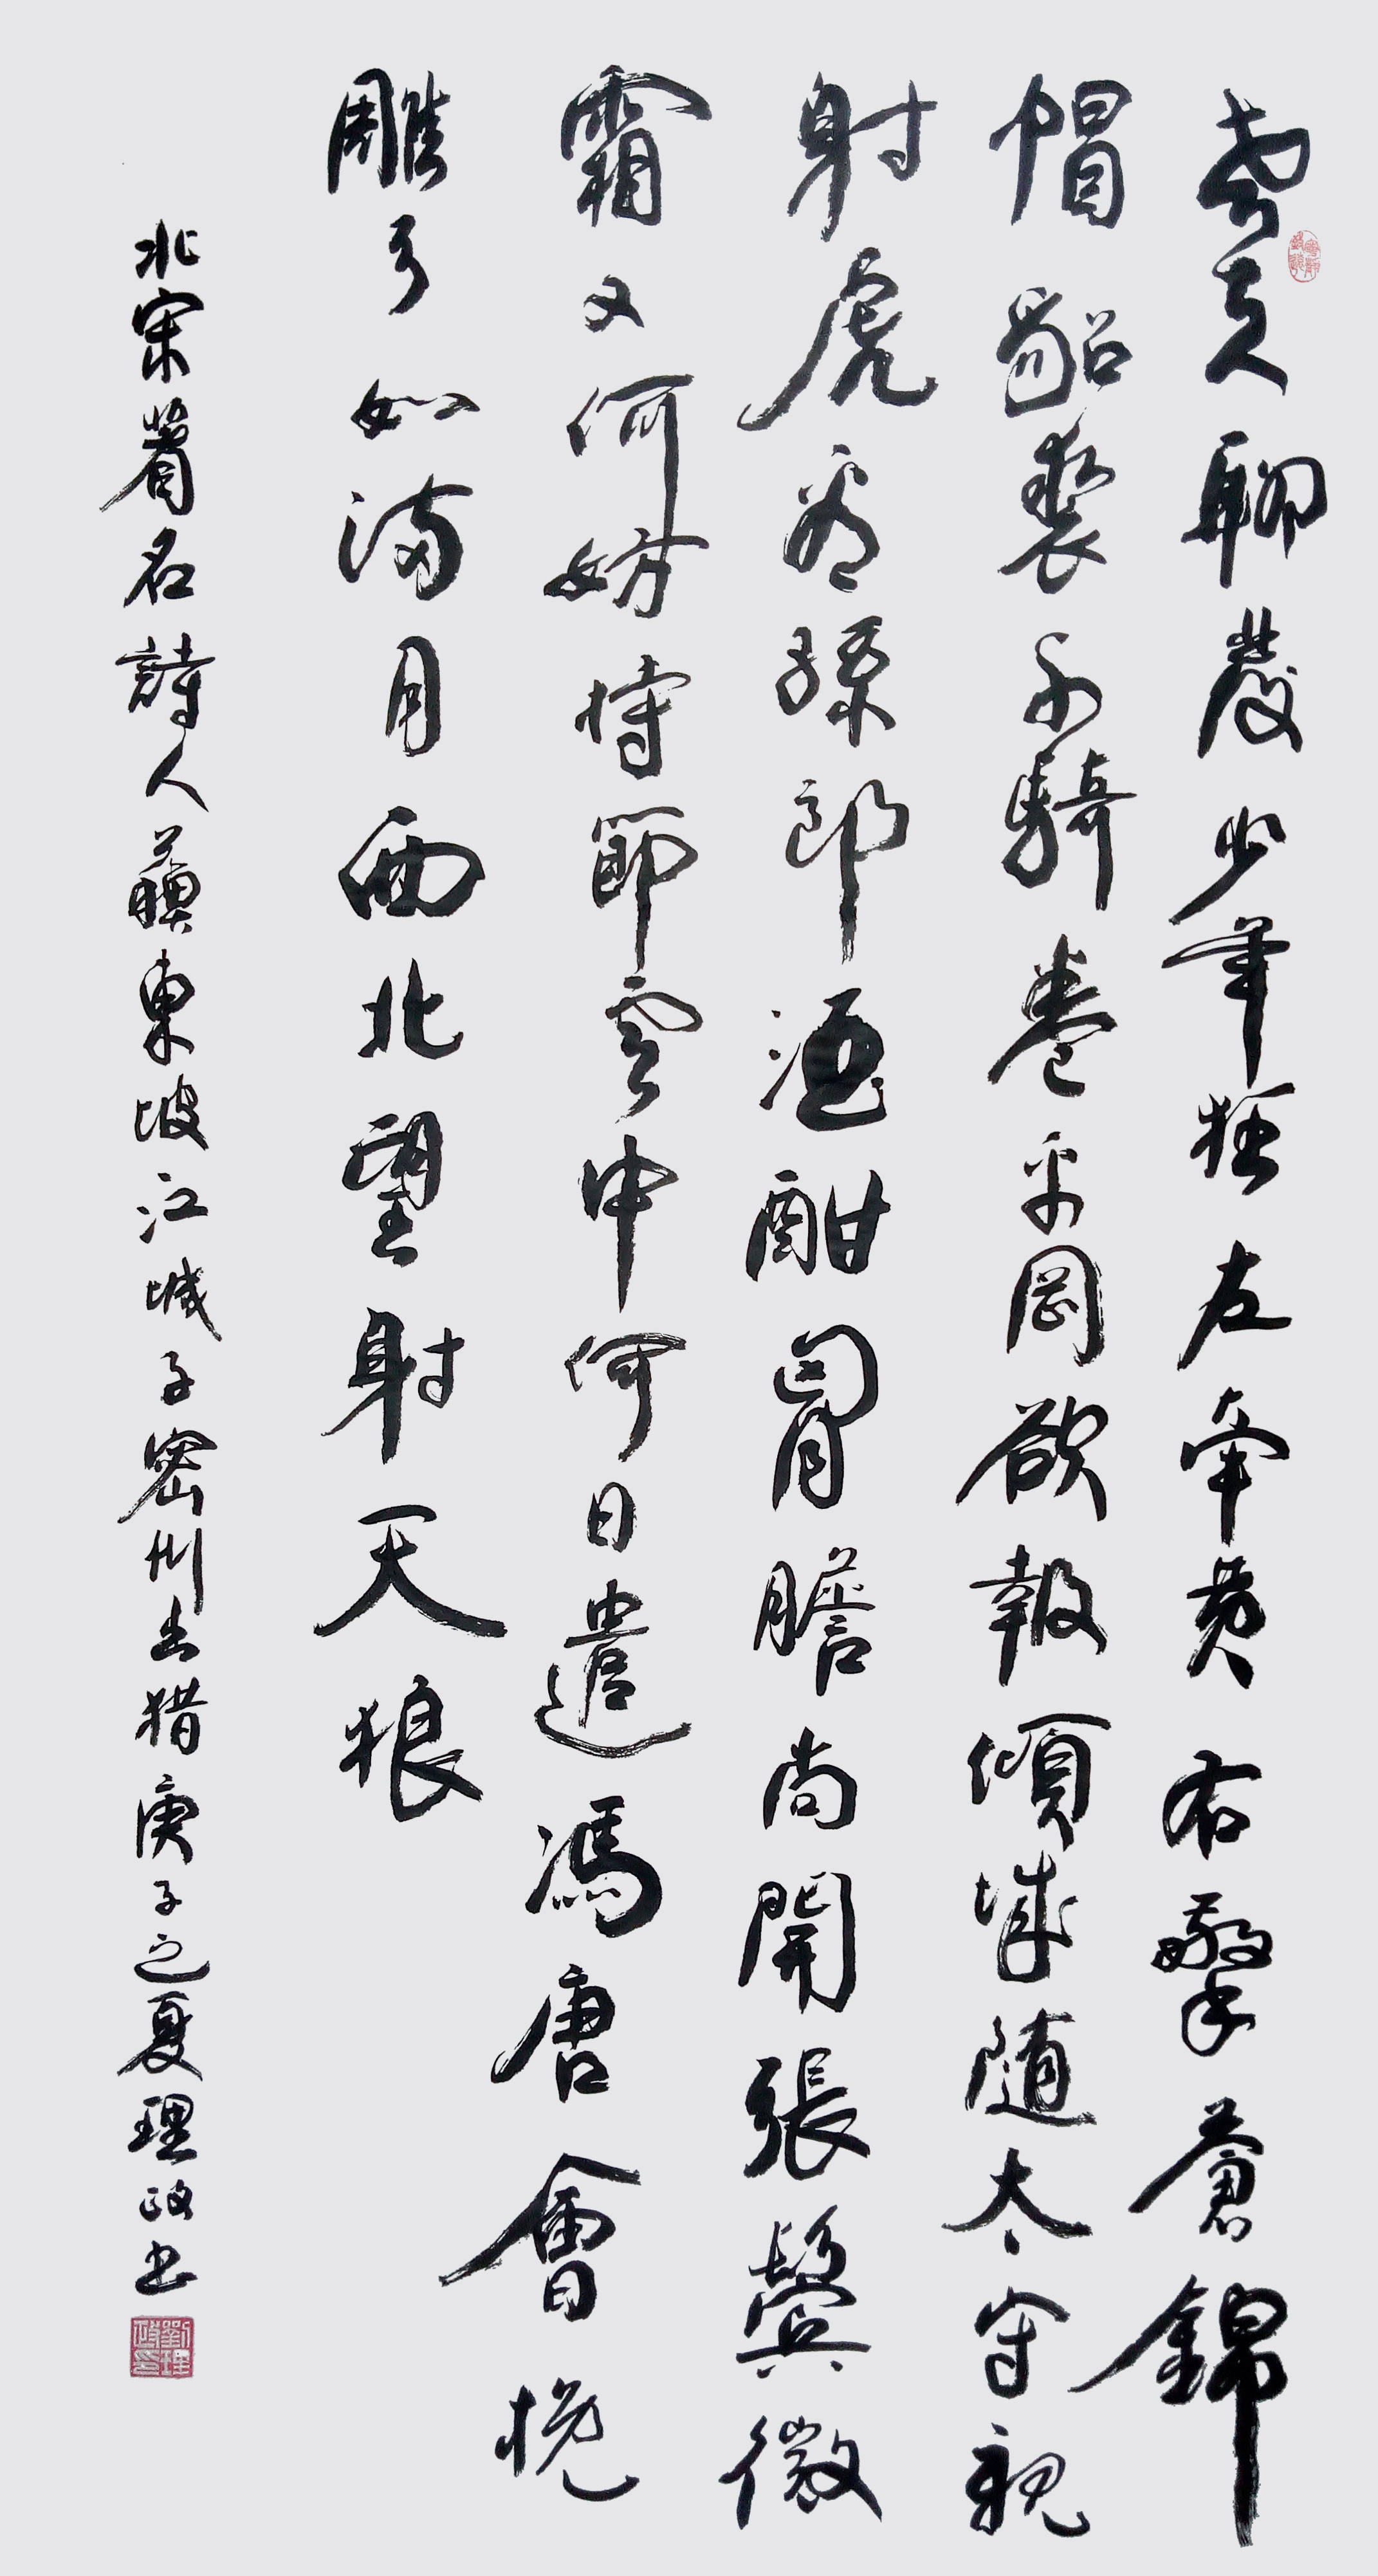 老夫聊發少年狂左牽黄右擎蒼錦
帽貂裘千騎卷平岡欲報傾城随太守親
射虎看孫郎酒酣胷膽尚開張鬢微
霜又何妨持節雲中何日遣馮唐會挽
雕弓如满月西北望射天狼
北宋著名詩人蘇東坡江城子密州出猎庚子之夏理政书
劉理政印